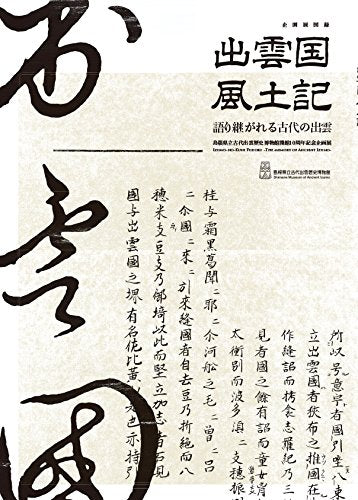 企画展図録
出雲国
風土記
語り継がれる古代の出雲
島根県立古代出雲歴史博物館開館10周年記念企画展
IZUMO-NO-KUNI FUDOKI -THE MEMORY OF ANCIENT IZUMO-
島根県立古代出雲歴史博物館
Shimane Museum of Ancient Izumo
出雲國
所以号意宇者國引坐八束
立出雲國者狭布之推國在
作縫詔而栲衾志羅紀乃三
見者國之餘有詔而童女
大衝別而波多須々支穂振
桂与霜黒葛聞々耶々尓河船之毛々曽々呂
々尓國々来々引来縫國者自去豆乃折絶而八
穂米支豆支乃御埼以此而堅立加志者石見
國与出雲國之堺有名佐比賣山是也亦持引